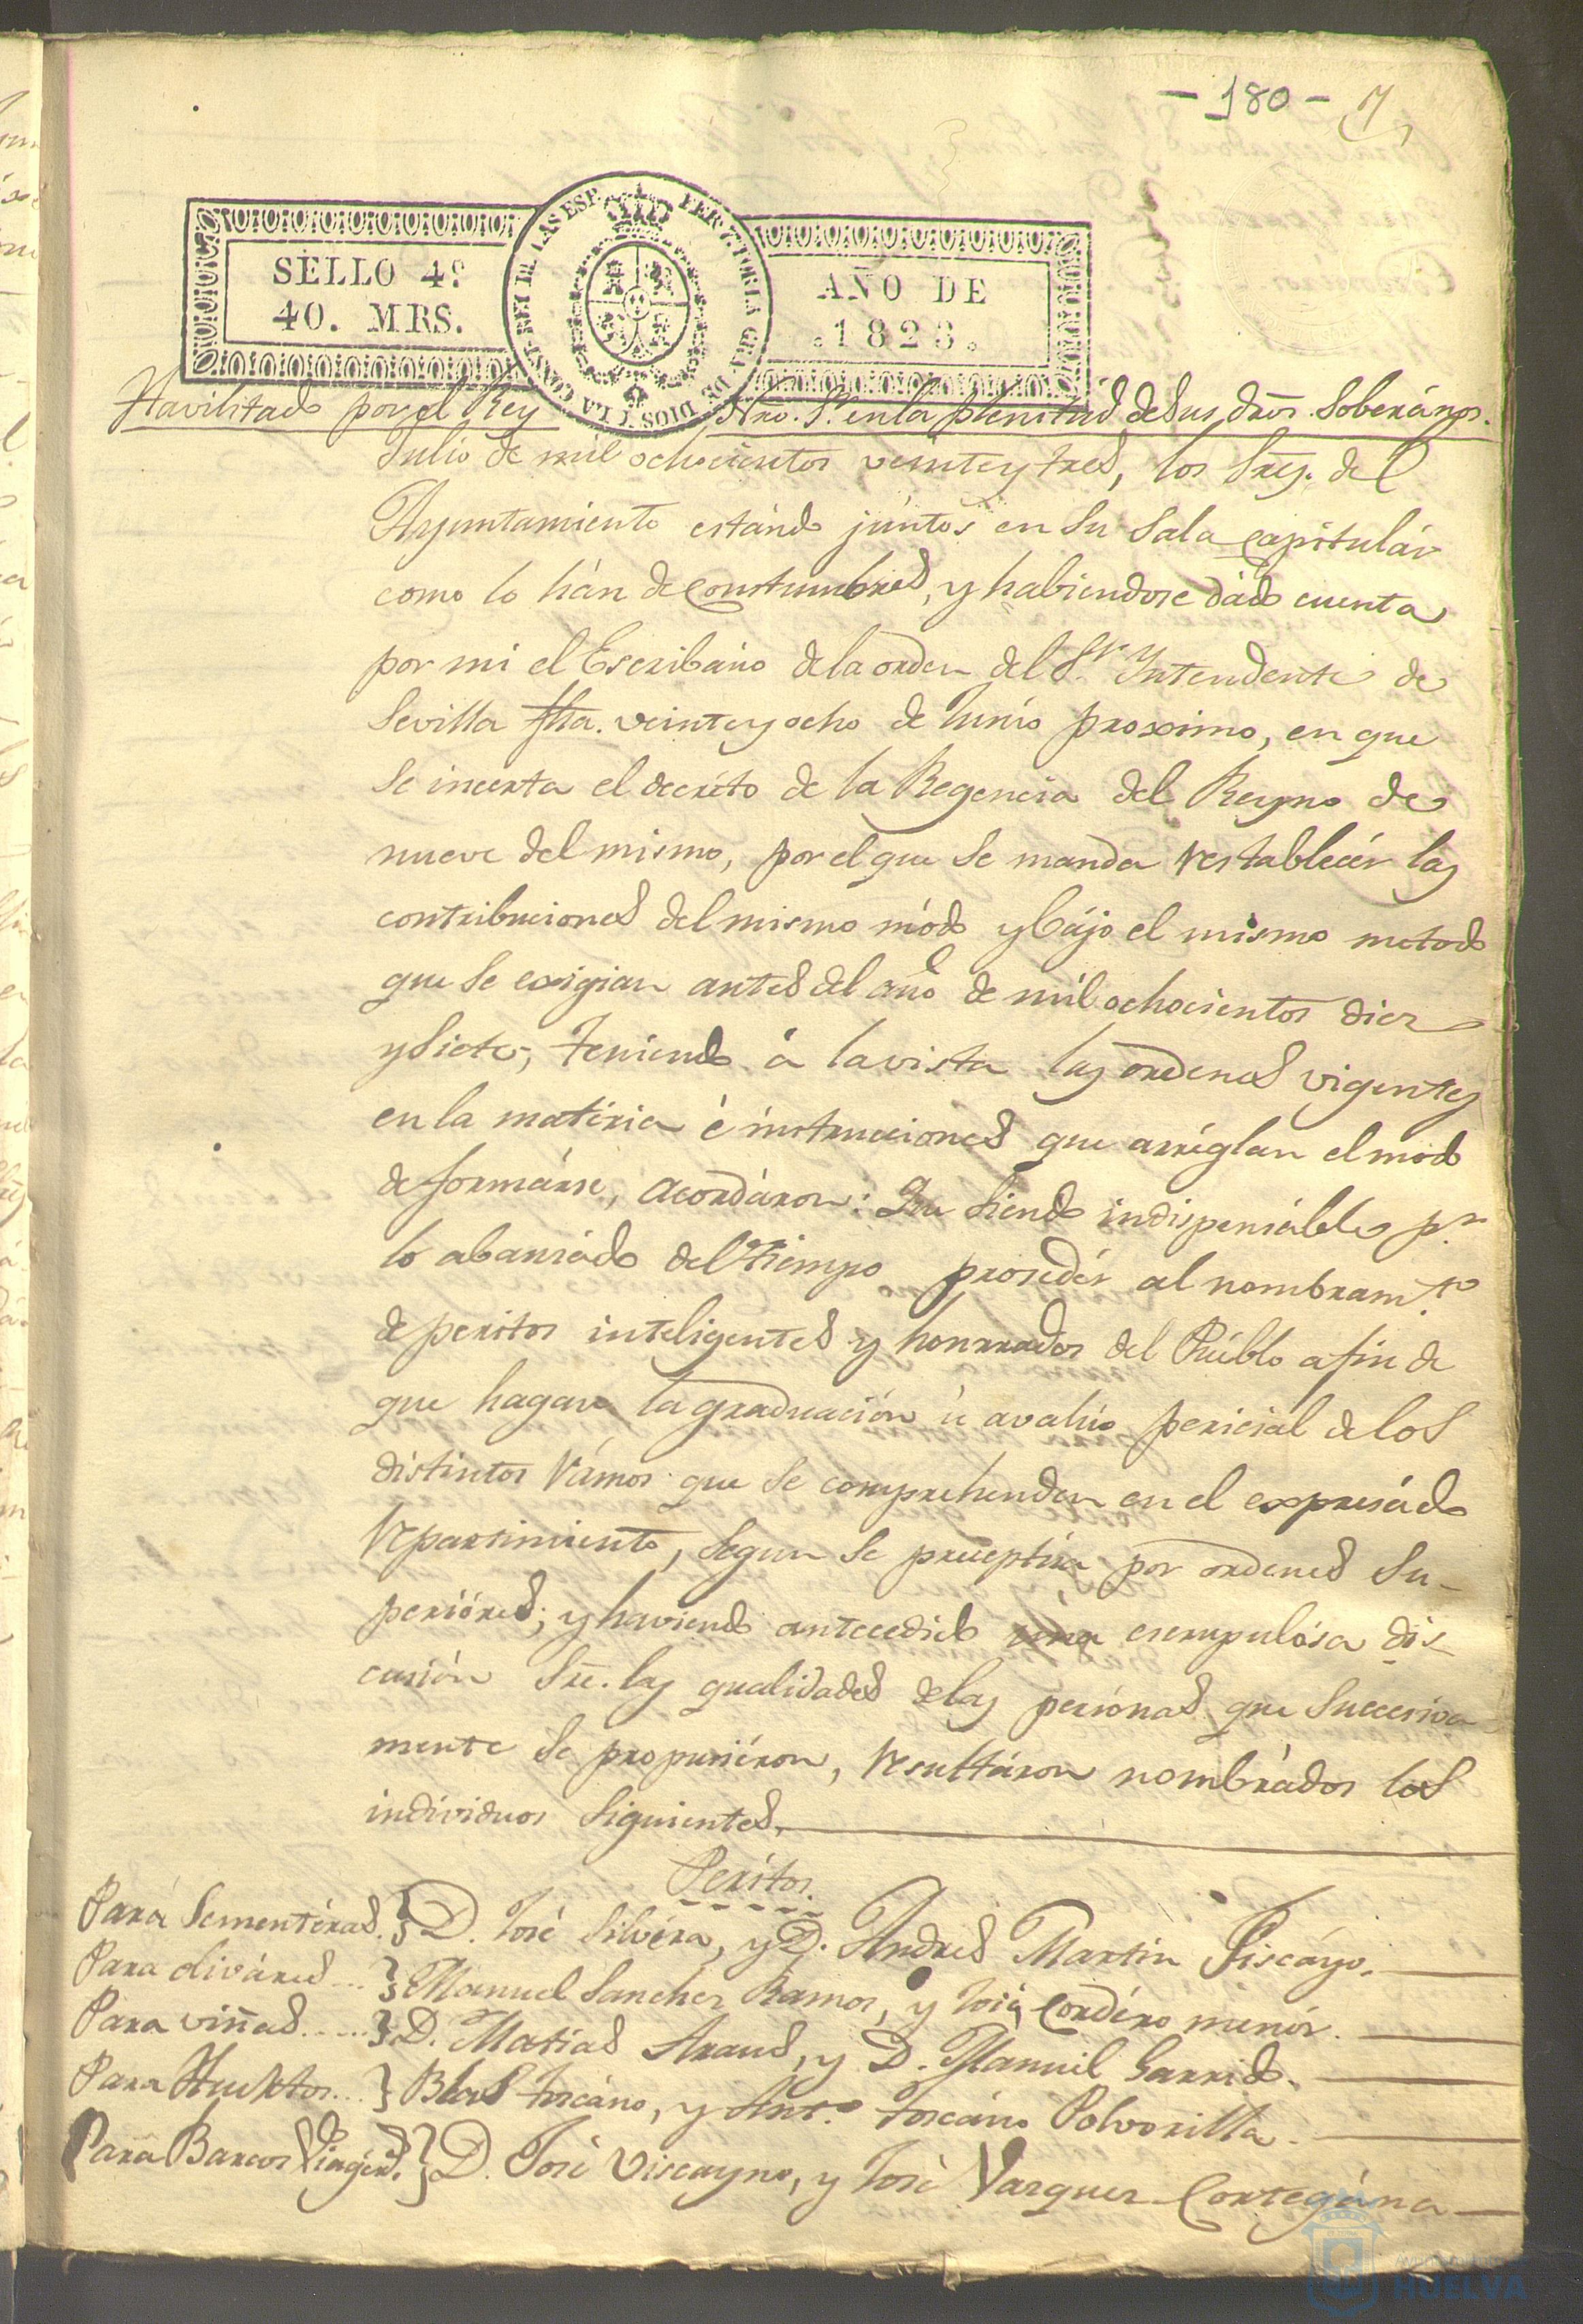 - 180 - 7
SELLO 4º
40. MRS.
FER. 7º POR LA GRA. DE DIOS Y LA CONST. REY DE LAS ESP.
AÑO DE
.1823.
Havilitado por el Rey Ntro. Sr. en la plenitud de sus dros. Soberános.
Julio de mil ochocientos veinte y tres, los Sres. del
Ayuntamiento estándo júntos en su Sala capitulár
como lo hán de Constumbre, y habiendose dádo cuenta
por mi el Escribano de la orden del Sr. Yntendente de
Sevilla fha. veinte y ocho de Junio proximo, en que
se incerta el decréto de la Regencia del Reyno de
nueve del mismo, por el que se manda restablecér las
contribuciones del mismo módo y bájo el mismo metodo
que se exigian antes del año de mil ochocientos diez
y siete, teniendo á la vista las ordenes vigentes
en la matéria é instrucciones que arréglan el modo
de formárse, acordáron: Que siendo indispensáble pr.
lo abansádo del tiempo prosedér al nombramto.
de peritos inteligentes y honrrados del Puéblo a fin de
que hagan la graduación ú avalúo pericial de los
distintos rámos que se comprehenden en el expresádo
repartimiento, segun se preceptúa por ordenes su-
perióres; y haviendo antecedido una escrupulósa dis-
cusión sre. las qualidades de las persónas que succesiva
mente se propusiéron, resultáron nombrádos los
individuos siguientes.
Peritos.
Para Sementéras. } D. José Silvéra, y D. Andres Martin Piscáyo.
Para olivares... } Manuel Sanchez Ramos, y José Cordéro menór.
Para viñas..... } D. Matías Araus, y D. Manuel Garrido.
Para Huertos... } Blas Toscáno, y Anto. Toscáno Polvorilla.
Para Barcos Viagéros. } D. José Viscayno, y José Vazquez Cortegána
AYUNTAMIENTO DE
HUELVA